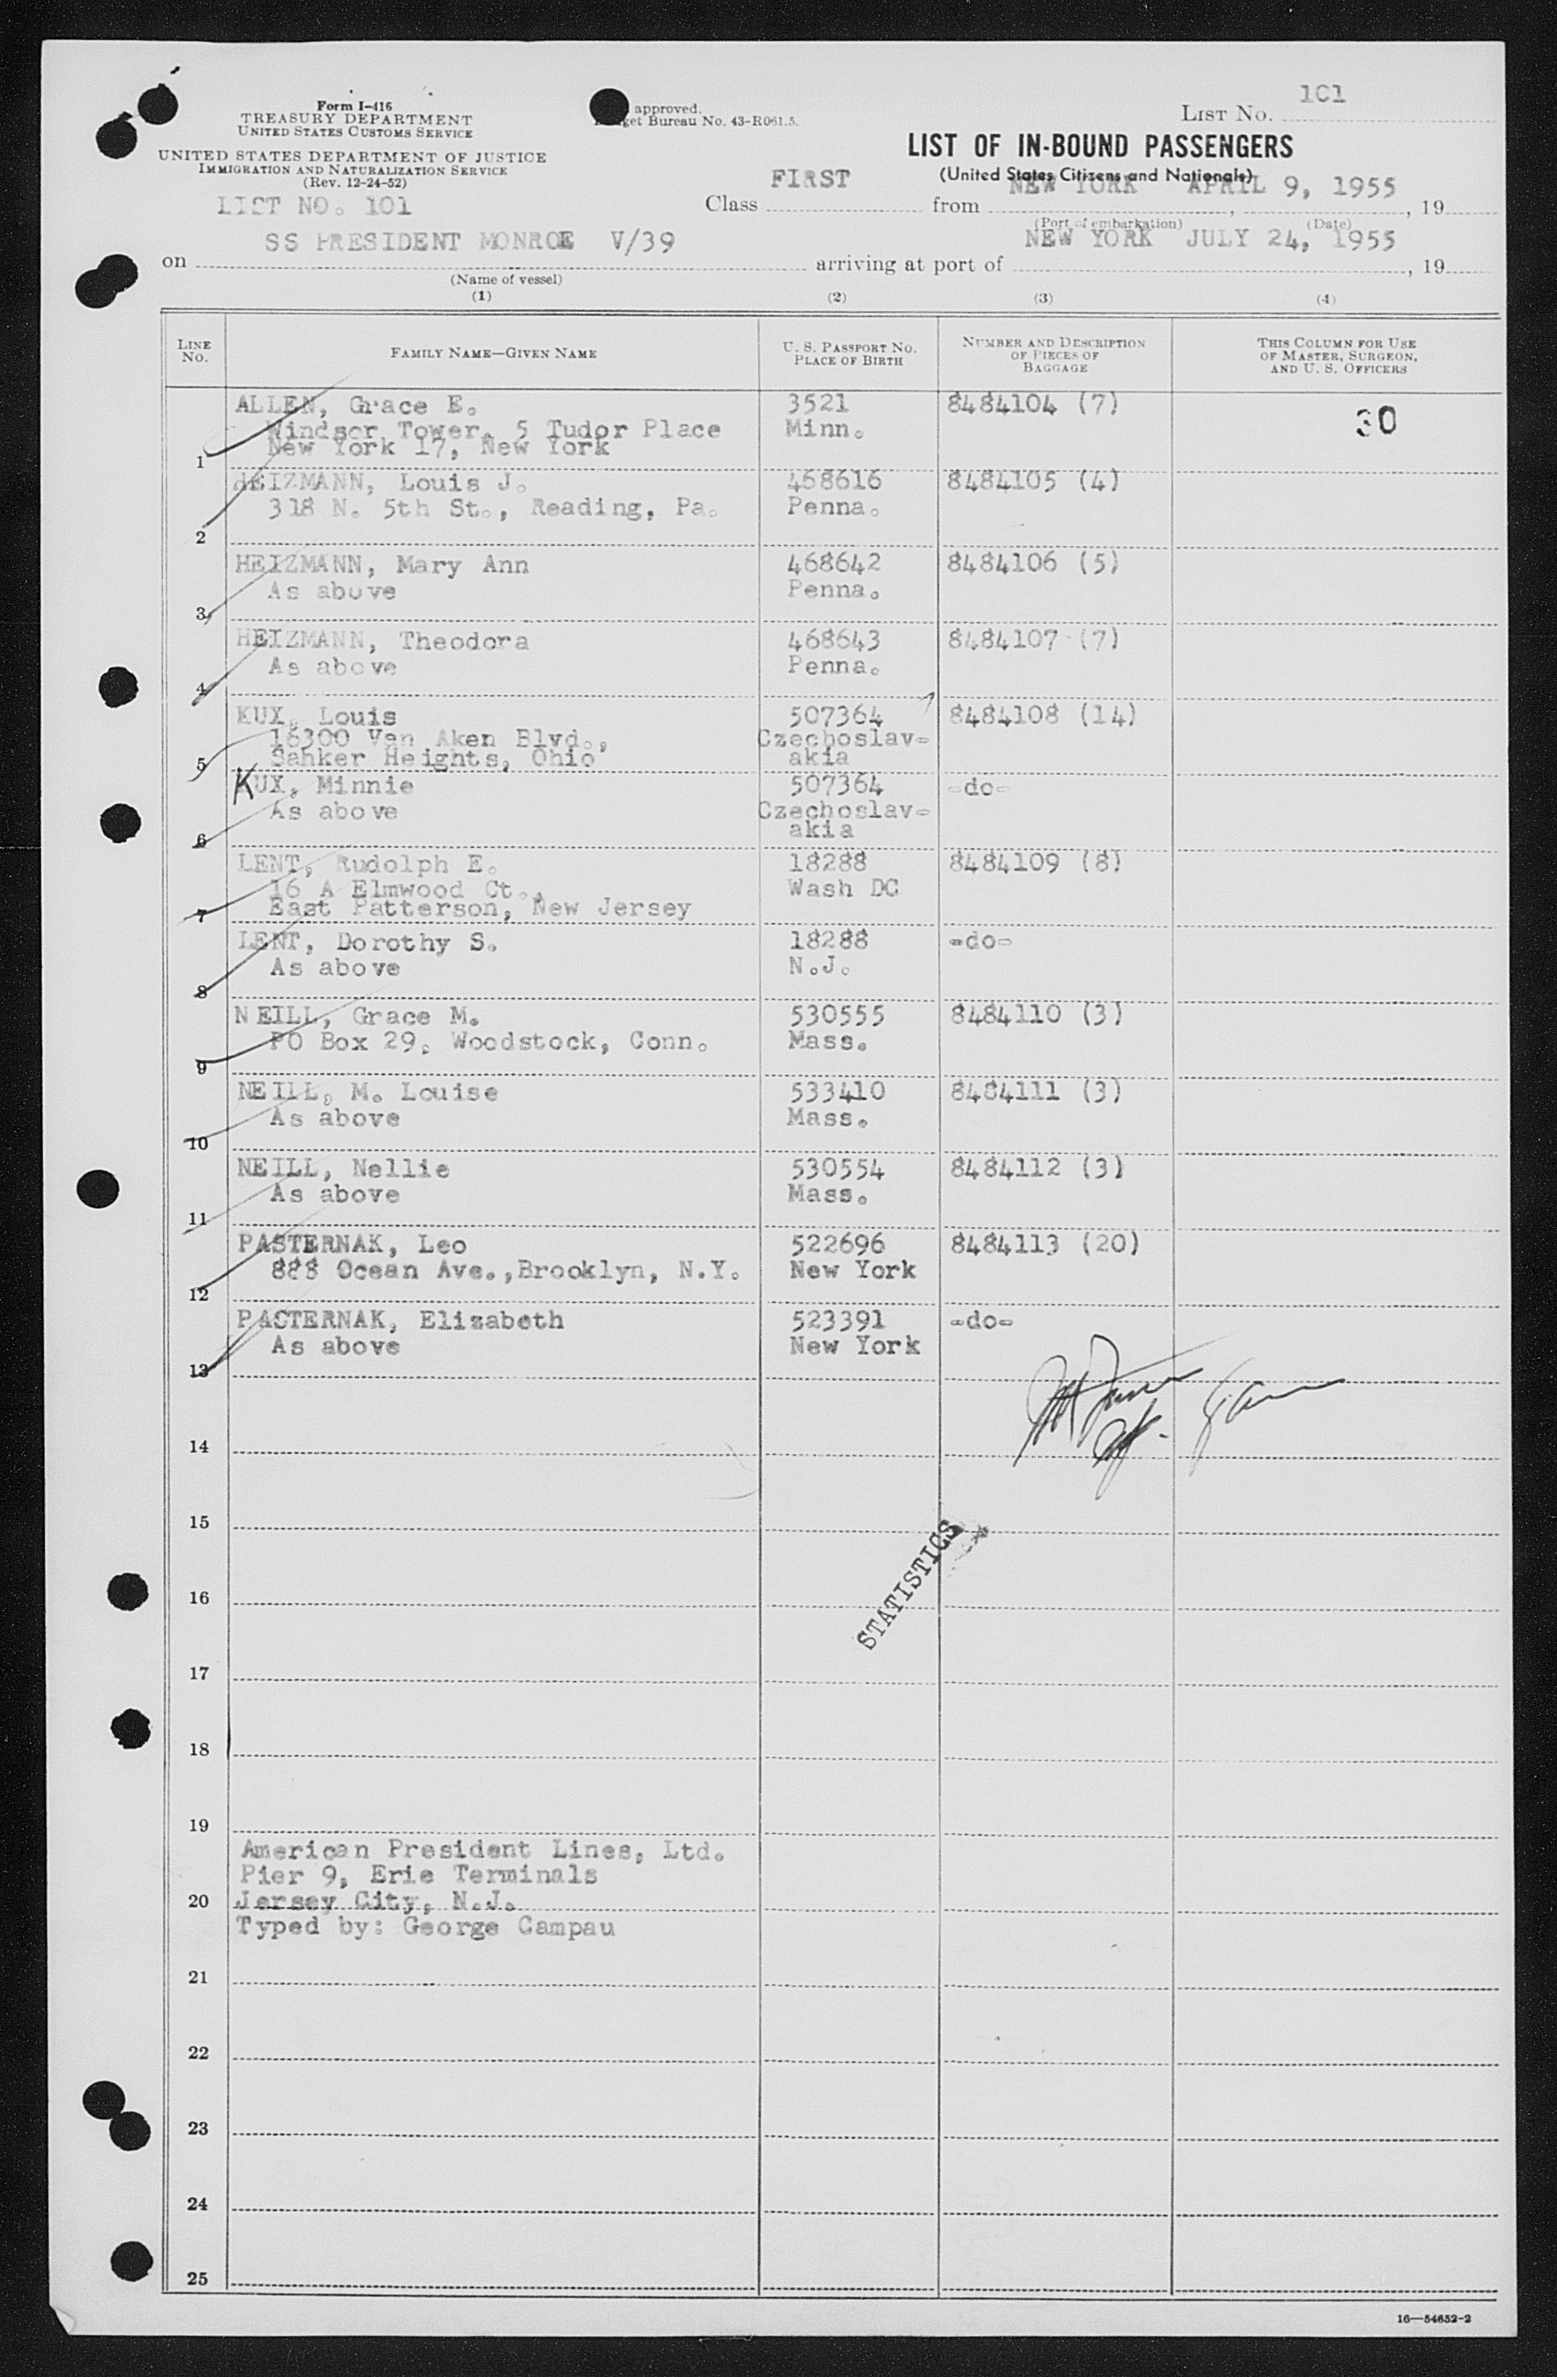 Form I-416
TREASURY DEPARTMENT
UNITED STATES CUSTOMS SERVICE
UNITED STATES DEPARTMENT OF JUSTICE
IMMIGRATION AND NATURALIZATION SERVICE
(Rev. 12-24-52)
LIST NO. 101
approved.
Bureau No. 43-R061.5.
LIST NO. 101
LIST OF IN-BOUND PASSENGERS
(United States Citizens and Nationals)
Class FIRST from NEW YORK APRIL 9, 1955, 19
(Port of embarkation) (Date)
on SS PRESIDENT MONROE V/39 arriving at port of NEW YORK JULY 24, 1955, 19
(Name of vessel)
(1) (2) (3) (4)
LINE NO. FAMILY NAME—GIVEN NAME U. S. PASSPORT NO. PLACE OF BIRTH NUMBER AND DESCRIPTION OF PIECES OF BAGGAGE THIS COLUMN FOR USE OF MASTER, SURGEON, AND U. S. OFFICERS
ALLEN, Grace E. 3521 8484104 (7) 30
Windsor Tower, 5 Tudor Place Minn.
1 New York 17, New York
HEIZMANN, Louis J. 468616 8484105 (4)
318 N. 5th St., Reading, Pa. Penna.
2
HEIZMANN, Mary Ann 468642 8484106 (5)
As above Penna.
3
HEIZMANN, Theodora 468643 8484107 (7)
As above Penna.
4
KUX, Louis 507364 8484108 (14)
16300 Van Aken Blvd., Czechoslav-
5 Sahker Heights, Ohio akia
KUX, Minnie 507364 -do-
As above Czechoslav-
6 akia
LENT, Rudolph E. 18288 8484109 (8)
16 A Elmwood Ct., Wash DC
7 East Patterson, New Jersey
LENT, Dorothy S. 18288 -do-
As above N.J.
8
NEILL, Grace M. 530555 8484110 (3)
PO Box 29, Woodstock, Conn. Mass.
9
NEILL, M. Louise 533410 8484111 (3)
As above Mass.
10
NEILL, Nellie 530554 8484112 (3)
As above Mass.
11
PASTERNAK, Leo 522696 8484113 (20)
888 Ocean Ave.,Brooklyn, N.Y. New York
12
PASTERNAK, Elizabeth 523391 -do-
As above New York
13
14
15
STATISTICS
16
17
18
19
American President Lines, Ltd.
Pier 9, Erie Terminals
20 Jersey City, N.J.
Typed by: George Campau
21
22
23
24
25
16—54652-2